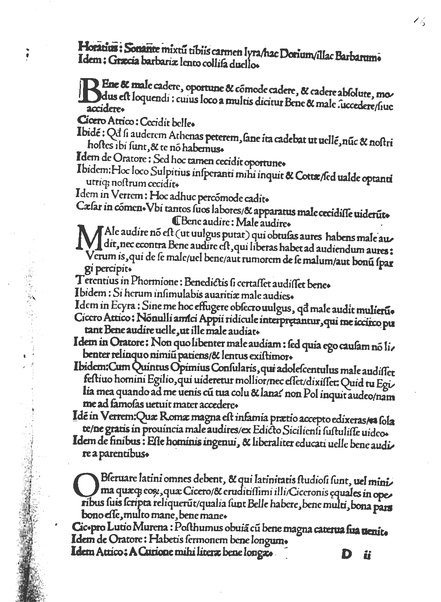 Horatius: Sonante mixtũ tibiis carmen lyra/hac Dorium/illac Barbarum.
Idem: Græcia barbariæ lento collisa duello.
BEne & male cadere, oportune & cõmode cadere, & cadere absolute, mo/
dus est loquendi: cuius loco a multis dicitur Bene & male succedere/siue
accidere.
Cicero Attico: Cecidit belle.
Ibidẽ: Qd si auderem Athenas peterem, sane ita cadebat ut uellẽ, nũc & nostri
hostes ibi sunt, & te nõ habemus.
Idem de Oratore: Sed hoc tamen cecidit oportune.
Ibidem: Hoc loco Sulpitius insperanti mihi inquit & Cottæ/sed ualde optanti
utriq; nostrum cecidit.
Idem in Verrem: Hoc adhuc percõmode cadit.
Cæsar in cõmen. Vbi tantos suos labores/& apparatus male cecidisse uiderũt.
¶ Bene audire: Male audire.
MAle audire nõ est (ut uulgus putat) qui obtusas aures habens male au/
dit, nec econtra Bene audire est, qui liberas habet ad audiendum aures:
Verum is, qui de se male/uel bene/aut rumorem de se malum/aut bonũ spar
gi percipit.
Terentius in Phormione: Benedictis si certasset audisset bene.
Ibidem: Si herum insimulabis auaritiæ male audies.
Idem in Ecyra: Sine me hoc effugere obsecro uulgus, qd male audit mulierũ.
Cicero Attico: Nõnulli amsei Appii ridicule interpretantur, qui me iccirco pu
tant Bene audire uelle, ut ille male audiat.
Idem in Oratore: Non quo libenter male audiam: sed quia ego causam nõ li/
benter relinquo nimiũ patiens/& lentus existimor.
Ibidem: Cum Quintus Opimius Consularis, qui adolescentulus male audisset
festiuo homini Egilio, qui uideretur mollior/nec esset/dixisset: Quid tu Egi/
lia mea quando ad me uenis cũ tua colu & lana? non Pol inquit audeo/nam
me ad famosas uetuit mater accedere.
Idẽ in Verrem: Quæ Romæ magna est infamia prætio accepto edixeras/ea sola
te/ne gratis in prouincia male audires/ex Edicto Siciliensi sustulisse uideo.
Idem de finibus: Esse hominis ingenui, & liberaliter educati uelle bene audi/
re a parentibus.
OBseruare latini omnes debent, & qui latinitatis studiosi sunt, uel mini/
ma quæq; eoꝝ, quæ Cicero/& eruditissimi illi/Ciceronis equales in ope/
ribus suis scripta reliquerũt/qualia sunt Belle habere, bene multi, bona pars
bono esse, multo mane, bene mane.
Cic. pro Lutio Murena: Posthumus obuiã cũ bene magna caterua sua uenit.
Idem de Oratore: Habetis sermonem bene longum.
Idem Attico: A Curione mihi literæ bene longæ.
D ii